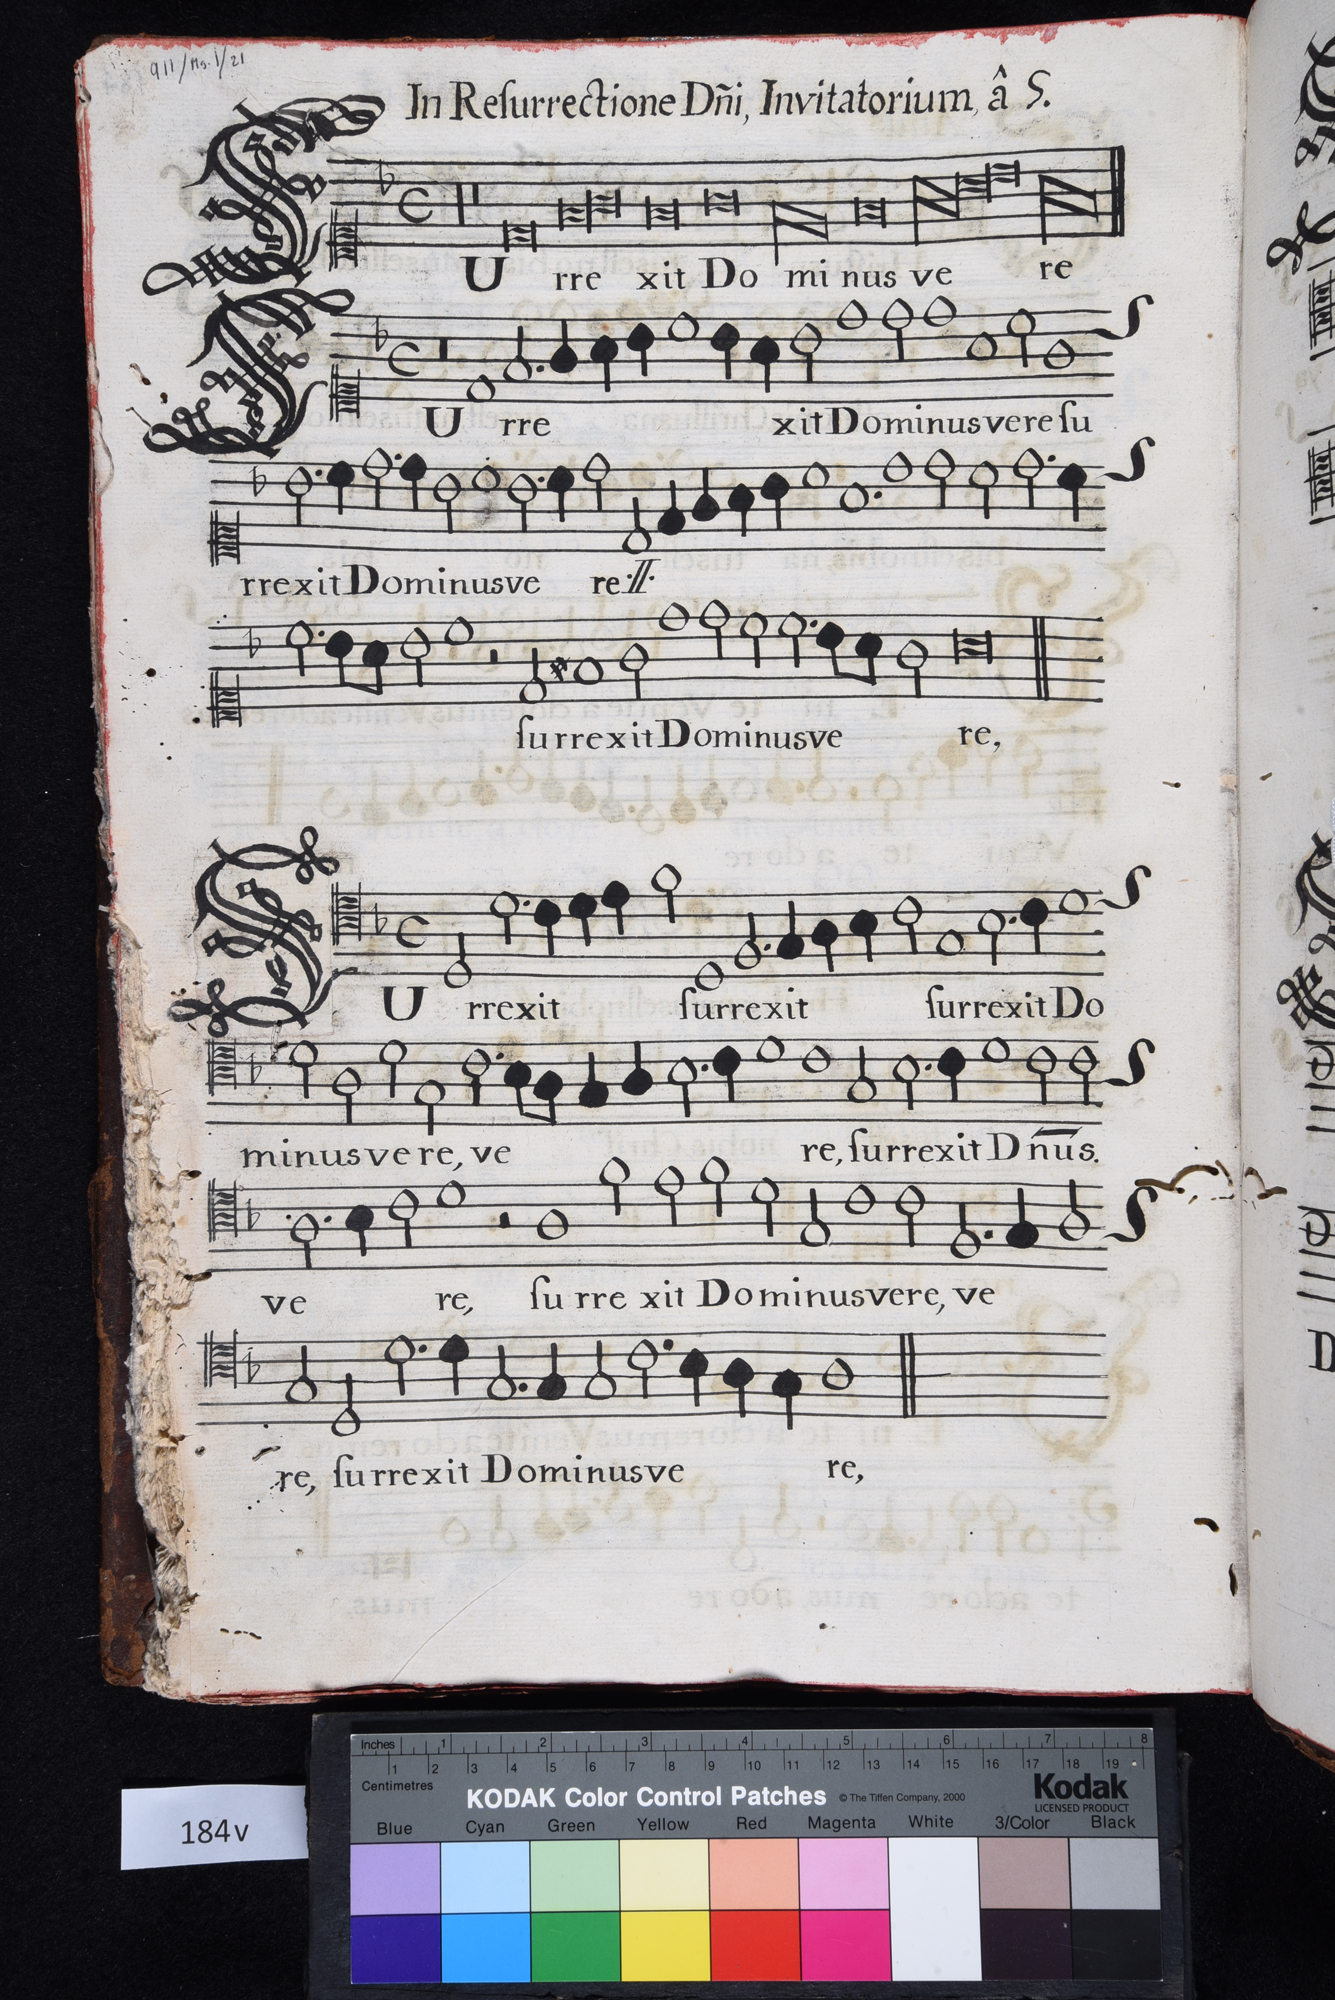 911/Ms.1/21
In Reſurrectione Dñi, Invitatorium, â S.
SU rre xit Do mi nus ve re
SU rre xit Dominus vere ſu
rrexit Dominus ve re :||:
ſurrexit Dominus ve re,
SU rrexit ſurrexit ſurrexit Do
minus vere, ve re, ſurrexit Dn̄us.
ve re, ſu rre xit Dominus vere, ve
re, ſurrexit Dominus ve re,
184v
Inches 1 2 3 4 5 6 7 8
1 2 3 4 5 6 7 8 9 10 11 12 13 14 15 16 17 18 19
Centimetres
KODAK Color Control Patches © The Tiffen Company, 2000 Kodak
LICENSED PRODUCT
Blue Cyan Green Yellow Red Magenta White 3/Color Black